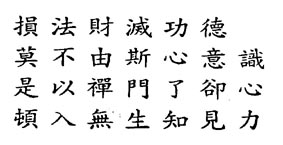 損法財滅功德
莫不由斯心意識
是以禪門了卻心
頓入無生知見力